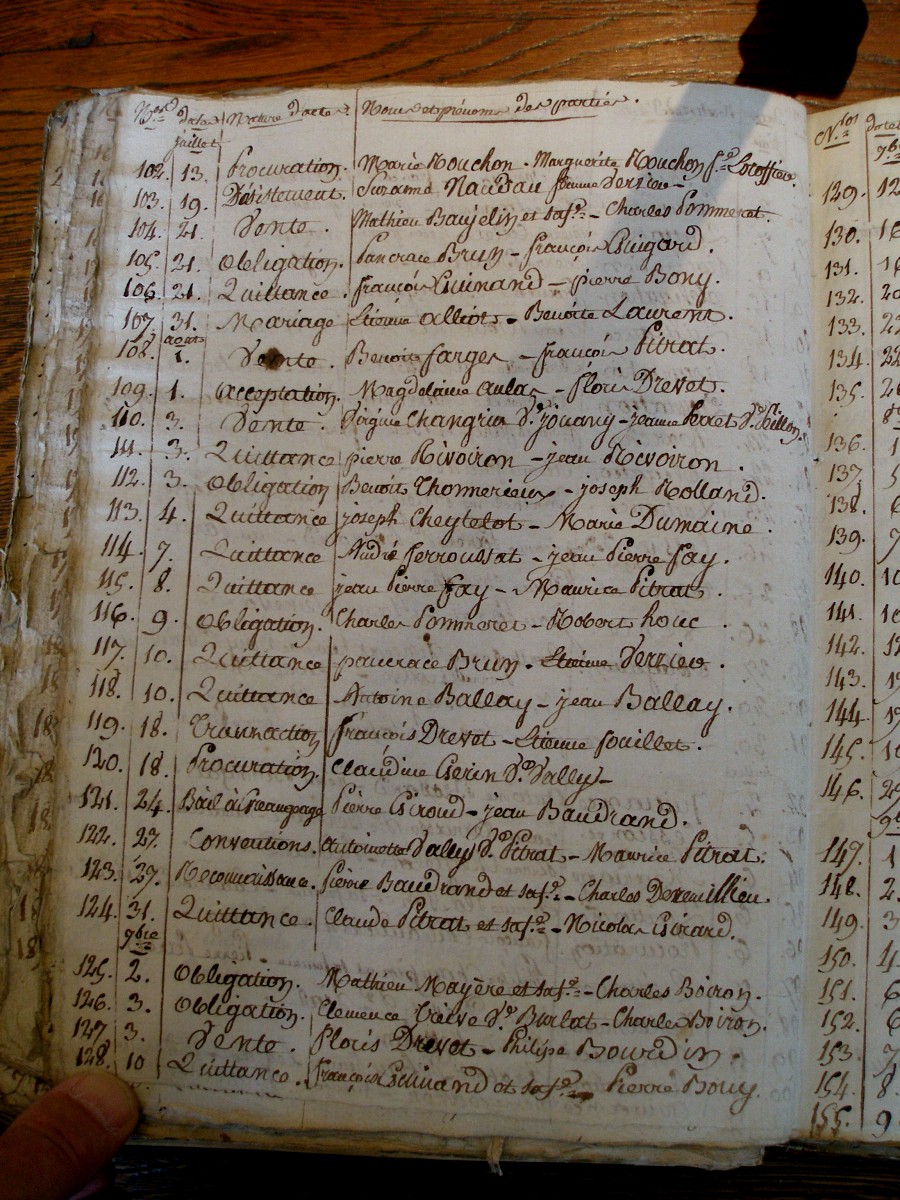 N.os dates Nature d'actes. Noms et prénoms des parties.
juillet
102. 13. Procuration. Marie Rouchon. Marguerite Rouchon f.e
103. 19. Désistement. Naudau femme Verrieu
104. 21. Vente. Mathieu Baujelin et sa f.e - Charles Pommerat.
105. 21. Obligation. Pancrace Brun - françois Guigard.
106. 21. Quittance. françois Guinand - pierre Bony.
107. 31. Mariage Etienne alliot - Benoite Laurent.
aout
108. 1. Vente. Benoit farges - françois Pitrat.
109. 1. acceptation. Magdelaine aulas - floris Drevet.
110. 3. Vente. Virginie Changrin V.e jouany - jeanne ferret V.e
111. 3. Quittance pierre Rivoiron - jean Rivoiron.
112. 3. Obligation Benoit Thonnerieux - joseph Rolland.
113. 4. Quittance joseph Cheytelot - Marie Dumaine.
114. 7. Quittance André ferroussat - jean Pierre fay.
115. 8. Quittance jean Pierre fay - Maurice Pitrat.
116. 9. Obligation. Charles Pommeret - Robert houc.
117. 10. Quittance pancrace Brun. Etienne Verrieu.
118. 10. Quittance Antoine Ballay - jean Ballay.
119. 18. Transaction françois Drevet - Etienne fouillet.
120. 18. Procuration. Claudine Gerin V.e Vally
121. 24. Bail à Pierre Giroud - jean Baudrand.
122. 27. Conventions. antoinette Vally V.e Pitrat - Maurice Pitrat.
123. 29. Reconnoissance. Pierre Baudrand et sa f.e - Charles
124. 31. Quittance. Claude Pitrat et sa f.e - Nicolas Girard.
7bre
125. 2. Obligation. Mathieu Mayere et sa f.e - Charles Boiron.
126. 3. Obligation. Clemence Trève V.e Burlat - Charles Boiron.
127 3. Vente. Floris Drevet - Philipe Bourdin.
128. 10 Quittance. françois Guinand et sa f.e Pierre Bony.
N.os dates
7bre
129. 12
130. 16
131. 16
132. 20
133. 22
134. 22
135.
136. 1
137. 5
138. 6
139. 7
140. 10
141. 10
142. 12
143. 15
144. 15
145. 16
146. 29
9bre
147. 1
148. 2
149. 3
150. 4
151. 6
152. 6
153. 7
154. 8
155. 9